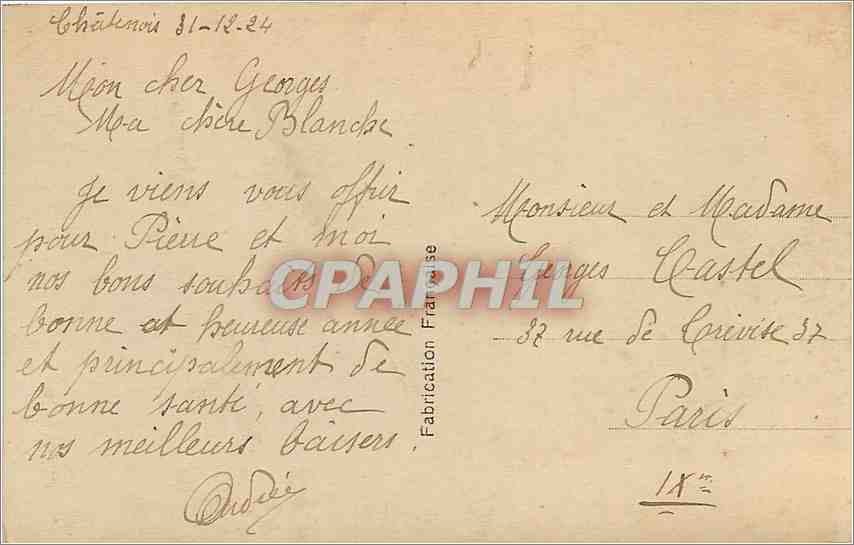 Châtenois 31-12-24
Mon cher Georges
Ma chère Blanche
Je viens vous offrir
pour Pierre et moi
nos bons souhaits de
bonne et heureuse année
et principalement de
bonne santé, avec
nos meilleurs baisers.
Andrée
Fabrication Française
Monsieur et Madame
Georges Castel
37 rue de Trévise 37
Paris
IXe
CPAPHIL